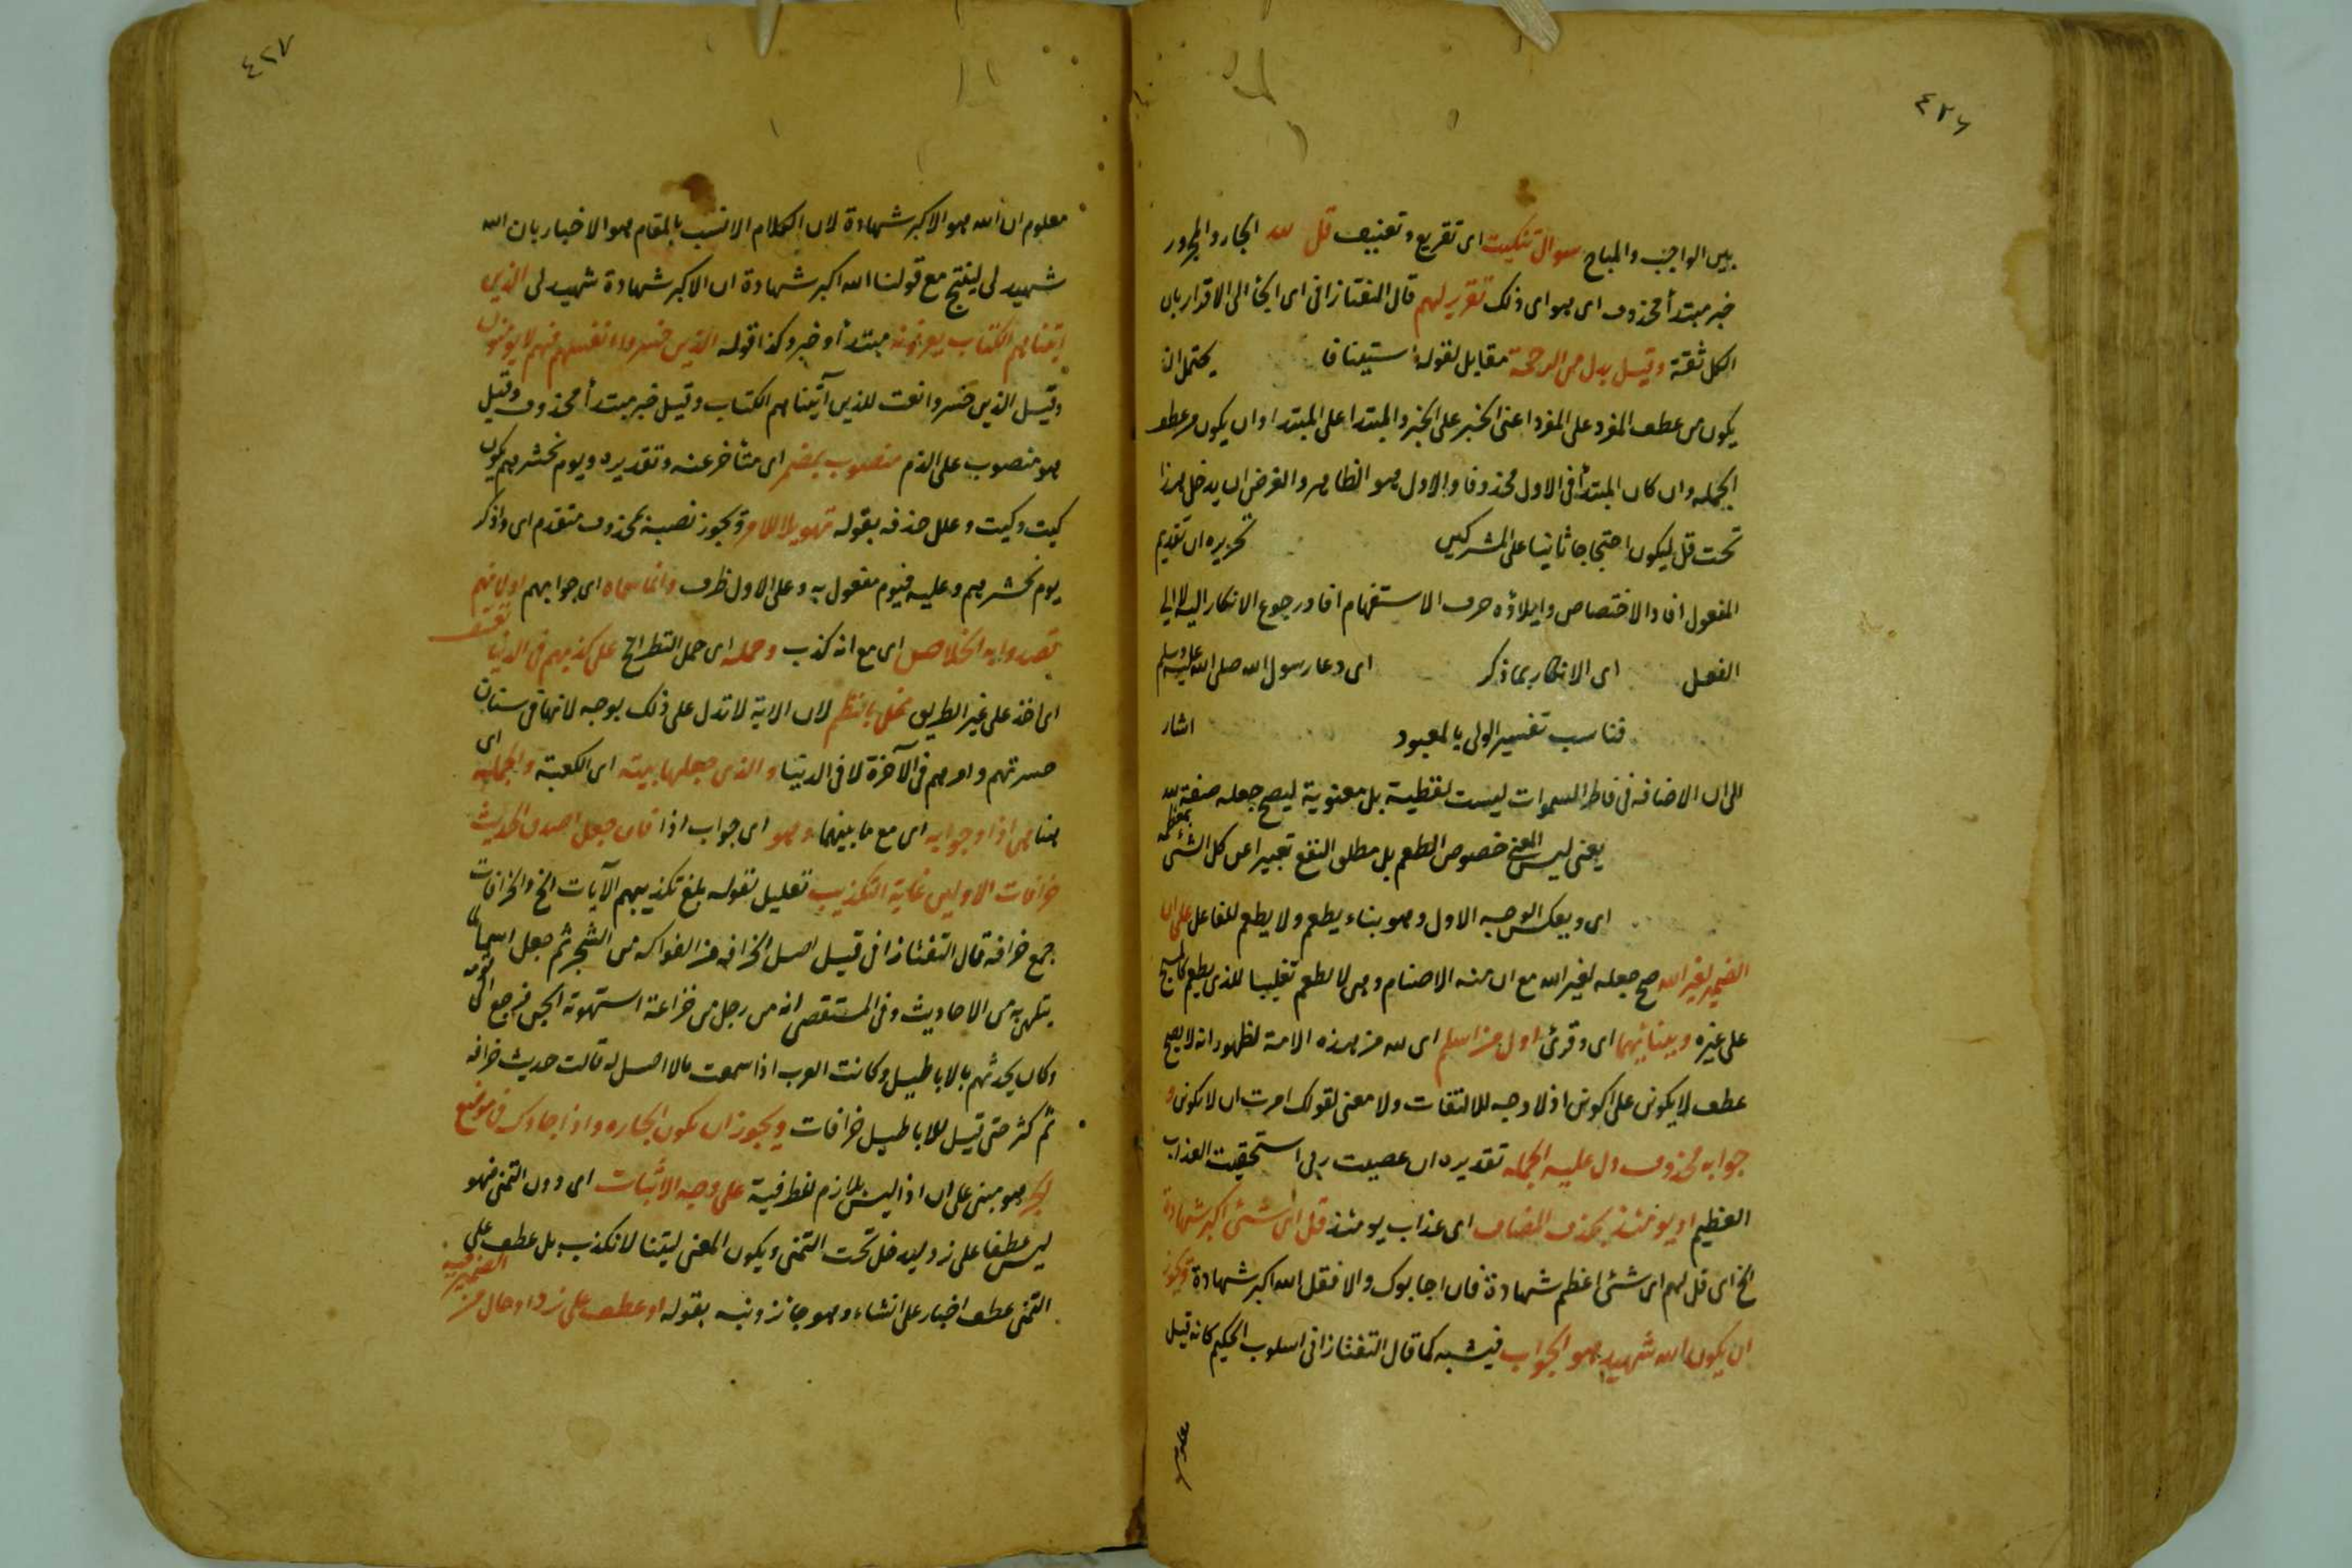 ٤٢٦
بين الواجب والمباح سوال تبكيت اى تقريع وتعنيف قل لله الجار والمجرور
خبر مبتدأ محذوف اى هو اى ذلك تقرير لهم قال التفتازانى اى الجأ الى الاقرار بان
الكل ثقة وقيل بدل من الرحمة مقابل لقوله استينافا يحتمل ان
يكون من عطف المفرد على المفرد اعنى الخبر على الخبر والمبتدا على المبتدا وان يكون من عطف
الجمله وان كان المبتدأ فى الاول محذوفا والاول هو الظاهر والغرض ان يدخل هذا
تحت قل ليكون احتجاجا ثانيا على المشركين تحريره ان تقديم
المفعول افاد الاختصاص وايلاؤه حرف الاستفهام افاد رجوع الانكار اليه لا الى
الفعل اى الانكار بما ذكر اى دعا رسول الله صلى الله عليه وسلم
فناسب تفسير الولى بالمعبود اشار
الى ان الاضافه فى فاطر السموات ليست لفظية بل معنوية ليصح جعله صفة لله
يعنى ليس المعنى خصوص الطعم بل مطلق النفع تعبيرا عن كل الشئ بمعظمه
اى وبعكس الوجه الاول وهو بناء يطعم ولا يطعم للفاعل على ان
الضمير لغير الله صح جعله لغير الله مع ان منه الاصنام وهى لا تطعم تغليبا للذى يطعم كالمسيح
على غيره وببنائهما اى وقرئ اول من اسلم اى لله من هذه الامة لظهور انه لا يصح
عطف لا يكونن على اكون اذ لا وجه للالتفات ولا معنى لقولك امرت ان لا تكونن و
جوابه محذوف دل عليه الجمله تقديره ان عصيت ربى استحقيت العذاب
العظيم او يومئذ بحذف المضاف اى عذاب يومئذ قل اى شئ اكبر شهادة
الخ اى قل لهم اى شئ اعظم شهادة فان اجابوك والا فقل الله اكبر شهادة ويجوز
ان يكون الله شهيد هو الجواب فيشبه كما قال التفتازانى اسلوب الحكيم كانه قيل
معلوم
٤٢٧
معلوم ان الله هو الاكبر شهادة لان الكلام الانسب بالمقام هو الاخبار بان الله
شهيد لى لينتج مع قولنا الله اكبر شهادة ان الاكبر شهادة شهيد لى الذين
آتيناهم الكتاب يعرفونه مبتدأ وخبر وكذا قوله الذين خسروا انفسهم فهم لا يؤمنون
وقيل الذين خسروا نعت للذين آتيناهم الكتاب وقيل خبر مبتدأ محذوف وقيل
هو منصوب على الذم منصوب بمضمر اى متأخر عنه وتقديره ويوم نحشرهم يكون
كيت وكيت وعلل حذفه بقوله تهويلا للامر ويجوز نصبه بمحذوف متقدم اى واذكر
يوم نحشرهم وعليه فيوم مفعول به وعلى الاول ظرف وانما سماه اى جوابهم اولانهم
قصدوا به الخلاص اى مع انه كذب وحمله اى حمل انظر الخ على كذبهم فى الدنيا تعسف
اى اخذ على غير الطريق يخل بالنظم لان الاية لا تدل على ذلك بوجه لانها فى شان
حسرتهم وامرهم فى الآخرة لا فى الدنيا والذى جعلها بيته اى الكعبة والجمله اى
هنا هى اذا وجوابه اى مع ما بينهما وهو اى جواب اذا فان جعل اصدق الحديث
خرافات الاولين غاية التكذيب تعليل لقوله بلغ تكذيبهم الآيات الخ والخرافات
جمع خرافه قال التفتازانى قيل اصل الخرافه من الفواكه من الشجر ثم جعل اسما لما
يتلهى به من الاحاديث وفى المستقصى انه من رجل من خزاعة استهوته الجن فرجع الى قومه
وكان يحدثهم بالاباطيل وكانت العرب اذا سمعت مالا اصل له قالت حديث خرافه
ثم كثر حتى قيل للاباطيل خرافات ويجوز ان تكون الجاره واذا جاؤك فى موضع
الجر وهو مبنى على ان اذا ليس بلازم لظرفية على وجه الاثبات اى دون التمنى فهو
ليس عطفا على نرد ليدخل تحت التمنى ويكون المعنى ليتنا لا نكذب بل عطف على
التمنى عطف اخبار على انشاء وهو جائز ونبه بقوله او عطف على نرد او حال من الضمير فيه